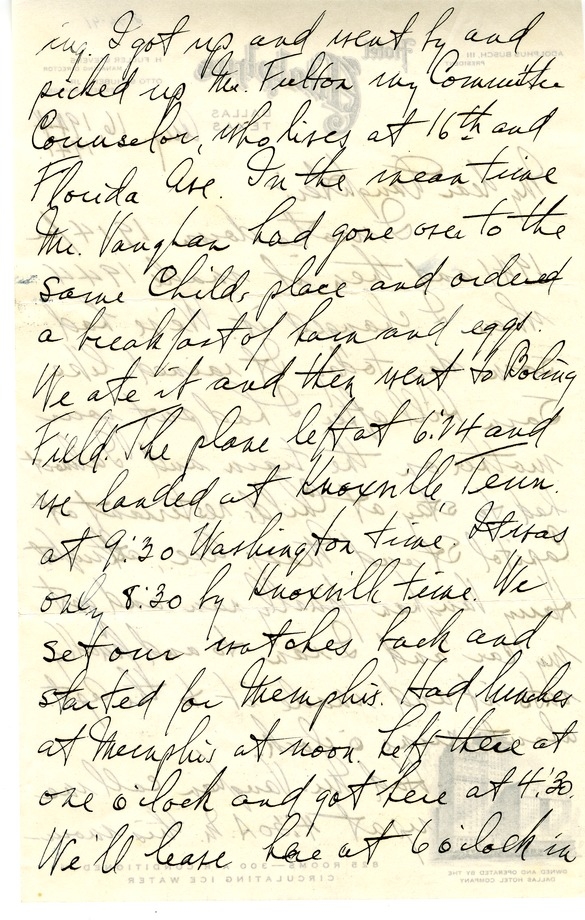 ing. I got up and went by and
picked up Mr. Fulton my Committee
Counselor, who lives at 16th and
Florida Ave. In the mean time
Mr. Vaughan had gone over to the
same Childs place and ordered
a breakfast of ham and eggs.
We ate it and then went to Boling
Field. The plane left at 6:14 and
we landed at Knoxville, Tenn.
at 9:30 Washington time. It was
only 8:30 by Knoxville time. We
set our watches back and
started for Memphis. Had lunches
at Memphis at noon. Left there at
one o'clock and got here at 4:30.
We'll leave here at 6 o'clock in